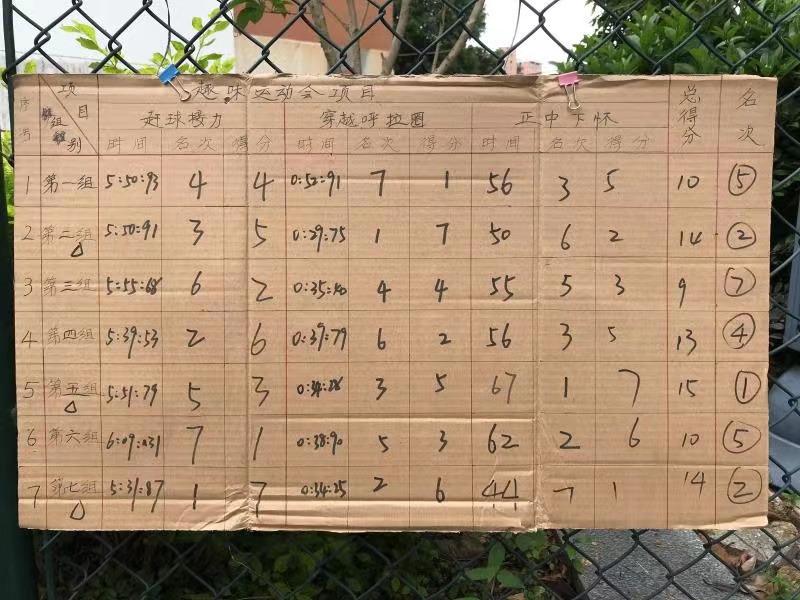 序号 项目 组别 趣味运动会项目 总得分 名次
赶球接力 穿越呼拉圈 正中下怀
时间 名次 得分 时间 名次 得分 时间 名次 得分
1 第一组 5:50:93 4 4 0:52:91 7 1 56 3 5 10 ⑤
2 第二组 5:50:91 3 5 0:29:75 1 7 50 6 2 14 ②
3 第三组 5:55:68 6 2 0:35:40 4 4 55 5 3 9 ⑦
4 第四组 5:39:53 2 6 0:39:79 6 2 56 3 5 13 ④
5 第五组 5:51:79 5 3 0:34:28 3 5 67 1 7 15 ①
6 第六组 6:09:031 7 1 0:38:90 5 3 62 2 6 10 ⑤
7 第七组 5:31:87 1 7 0:34:25 2 6 44 7 1 14 ②